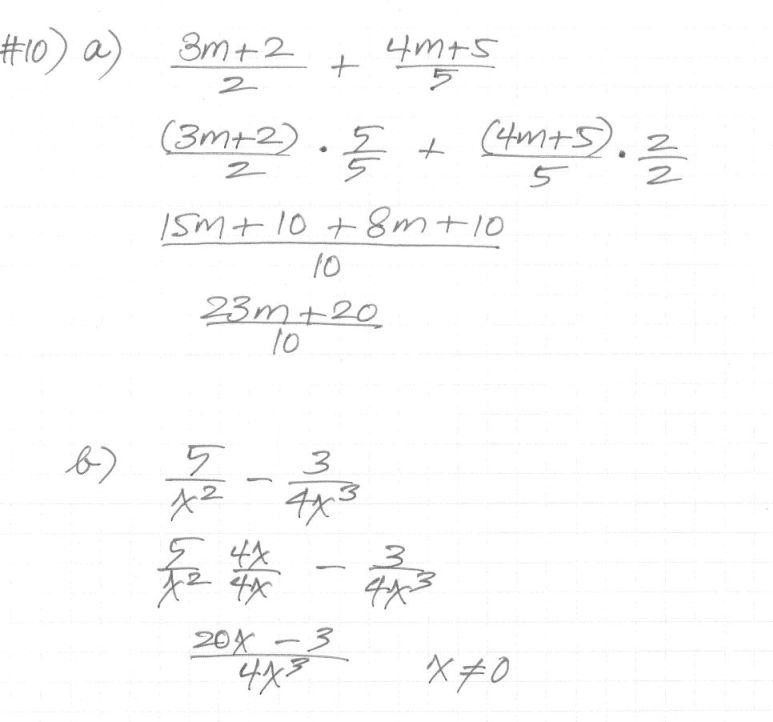 #10) a) (3m+2)/2 + (4m+5)/5
(3m+2)/2 · 5/5 + (4m+5)/5 · 2/2
(15m+10+8m+10)/10
(23m+20)/10
b) 5/x² - 3/4x³
5/x² 4x/4x - 3/4x³
(20x - 3)/4x³ x≠0